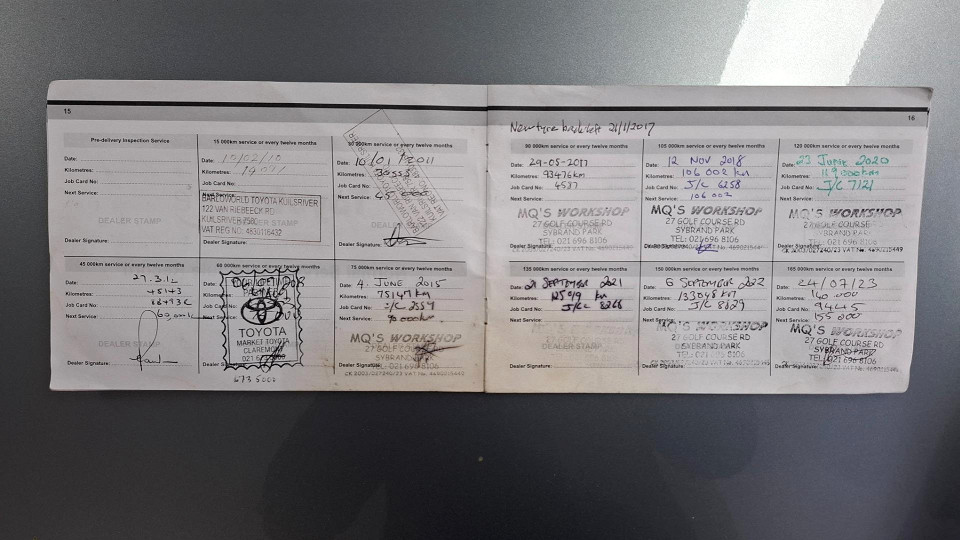 15
Pre-delivery Inspection Service
Date:
Kilometres:
Job Card No:
Next Service:
DEALER STAMP
Dealer Signature:
15 000km service or every twelve months
Date: 10/02/10
Kilometres:
Job Card No:
Next Service:
BARLOWORLD TOYOTA KUILSRIVER
122 VAN RIEBEECK RD
KUILSRIVER 7580
VAT REG NO: 4830116432
Dealer Signature:
30 000km service or every twelve months
Date: 10/01/2011
Kilometres:
Job Card No:
Next Service: 45 000
DEALER
Dealer Signature:
45 000km service or every twelve months
Date:
Kilometres:
Job Card No:
Next Service:
DEALER STAMP
Dealer Signature:
60 000km service or every twelve months
Date:
Kilometres:
Job Card No:
Next Service:
TOYOTA
MARKET TOYOTA
CLAREMONT
673 5000
75 000km service or every twelve months
Date: 4. JUNE 2015
Kilometres: 75147 KM
Job Card No: J/C 2554
Next Service: 90 000km
MQ'S WORKSHOP
27 GOLF COURSE RD
SYBRAND PARK
TEL: 021 696 8106
Dealer Signature:
CK 2003/027240/23 VAT No. 4690215449
16
New tyre back left 21/1/2017
90 000km service or every twelve months
Date: 29-05-2017
Kilometres: 93476km
Job Card No: 4587
Next Service:
MQ'S WORKSHOP
27 GOLF COURSE RD
SYBRAND PARK
TEL: 021 696 8106
Dealer Signature:
105 000km service or every twelve months
Date: 12 NOV 2018
Kilometres: 106 002 km
Job Card No: J/C 6258
Next Service: 106 002
MQ'S WORKSHOP
27 GOLF COURSE RD
SYBRAND PARK
TEL: 021 696 8106
Dealer Signature:
120 000km service or every twelve months
Date: 23 JUNE 2020
Kilometres: 119 000km
Job Card No: J/C 7121
Next Service:
MQ'S WORKSHOP
27 GOLF COURSE RD
SYBRAND PARK
TEL: 021 696 8106
Dealer Signature:
135 000km service or every twelve months
Date: 21 SEPTEMBER 2021
Kilometres: 125019 km
Job Card No: J/C 8268
Next Service:
DEALER STAMP
Dealer Signature:
150 000km service or every twelve months
Date: 6 SEPTEMBER 2022
Kilometres: 133648 km
Job Card No: J/C 8829
Next Service:
MQ'S WORKSHOP
27 GOLF COURSE RD
SYBRAND PARK
TEL: 021 696 8106
Dealer Signature:
165 000km service or every twelve months
Date: 24/07/23
Kilometres: 140.000
Job Card No: 94445
Next Service: 155 000
MQ'S WORKSHOP
27 GOLF COURSE RD
SYBRAND PARK
TEL: 021 696 8106
Dealer Signature: